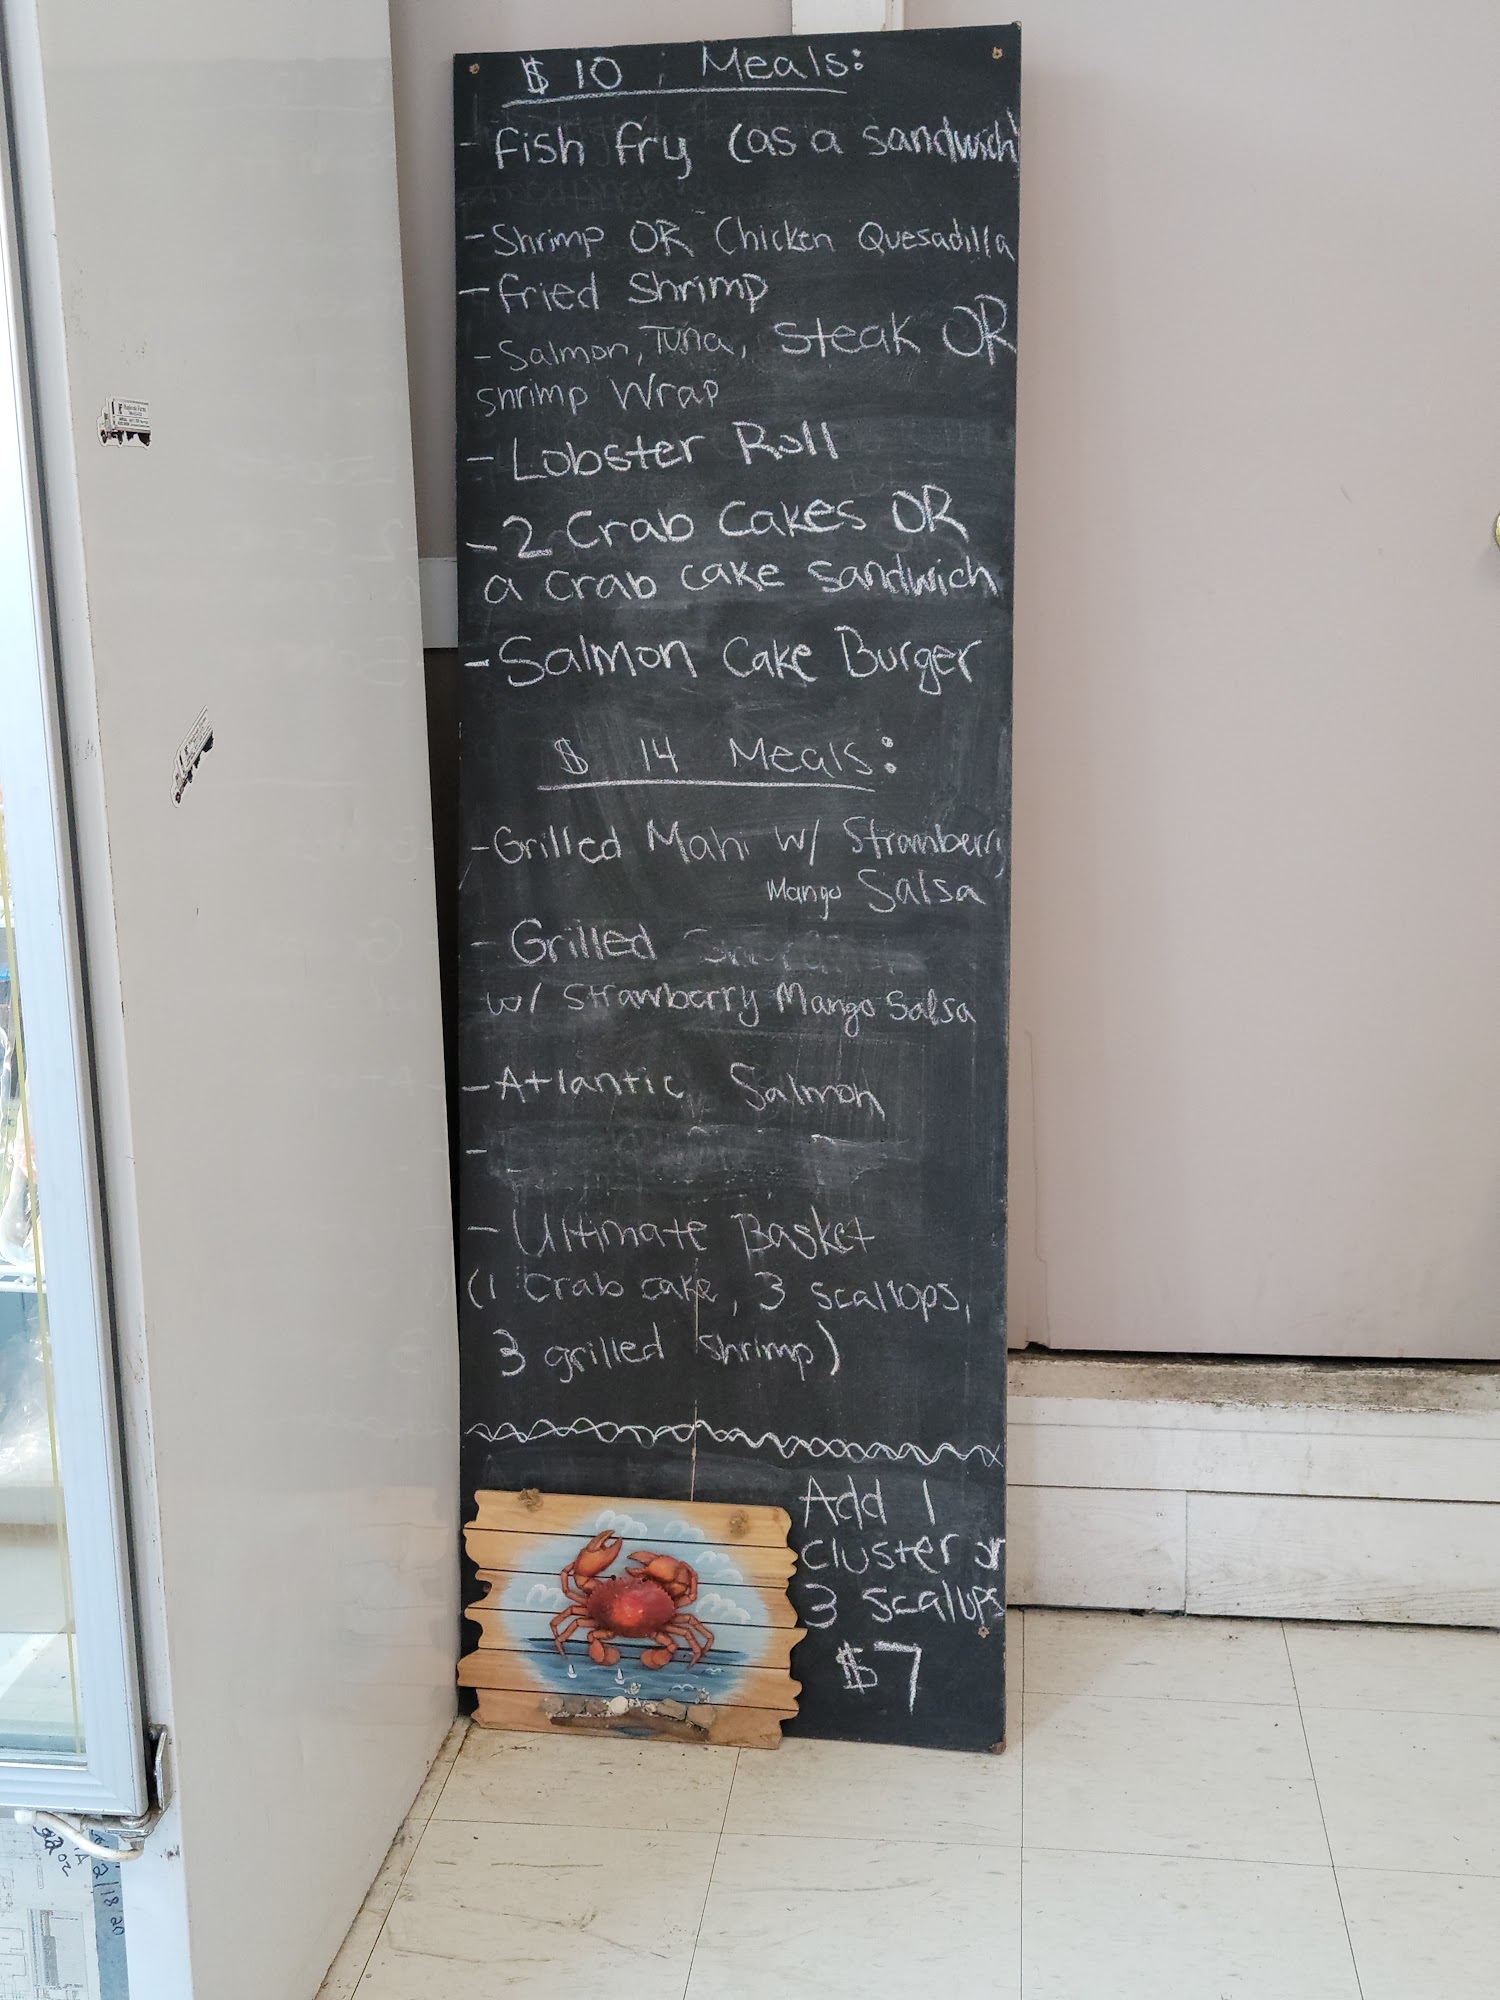 $10 Meals:
- Fish Fry (as a sandwich)
- Shrimp OR Chicken Quesadilla
- Fried Shrimp
- Salmon, Tuna, Steak OR
Shrimp Wrap
- Lobster Roll
- 2 Crab Cakes OR
a Crab cake sandwich
- Salmon Cake Burger
$ 14 Meals:
- Grilled Mahi w/ Strawberry
Mango Salsa
- Grilled
w/ Strawberry Mango Salsa
- Atlantic Salmon
-
- Ultimate Basket
(1 Crab cake, 3 scallops,
3 grilled shrimp)
Add 1
cluster or
3 scallops
$7
2/18 20